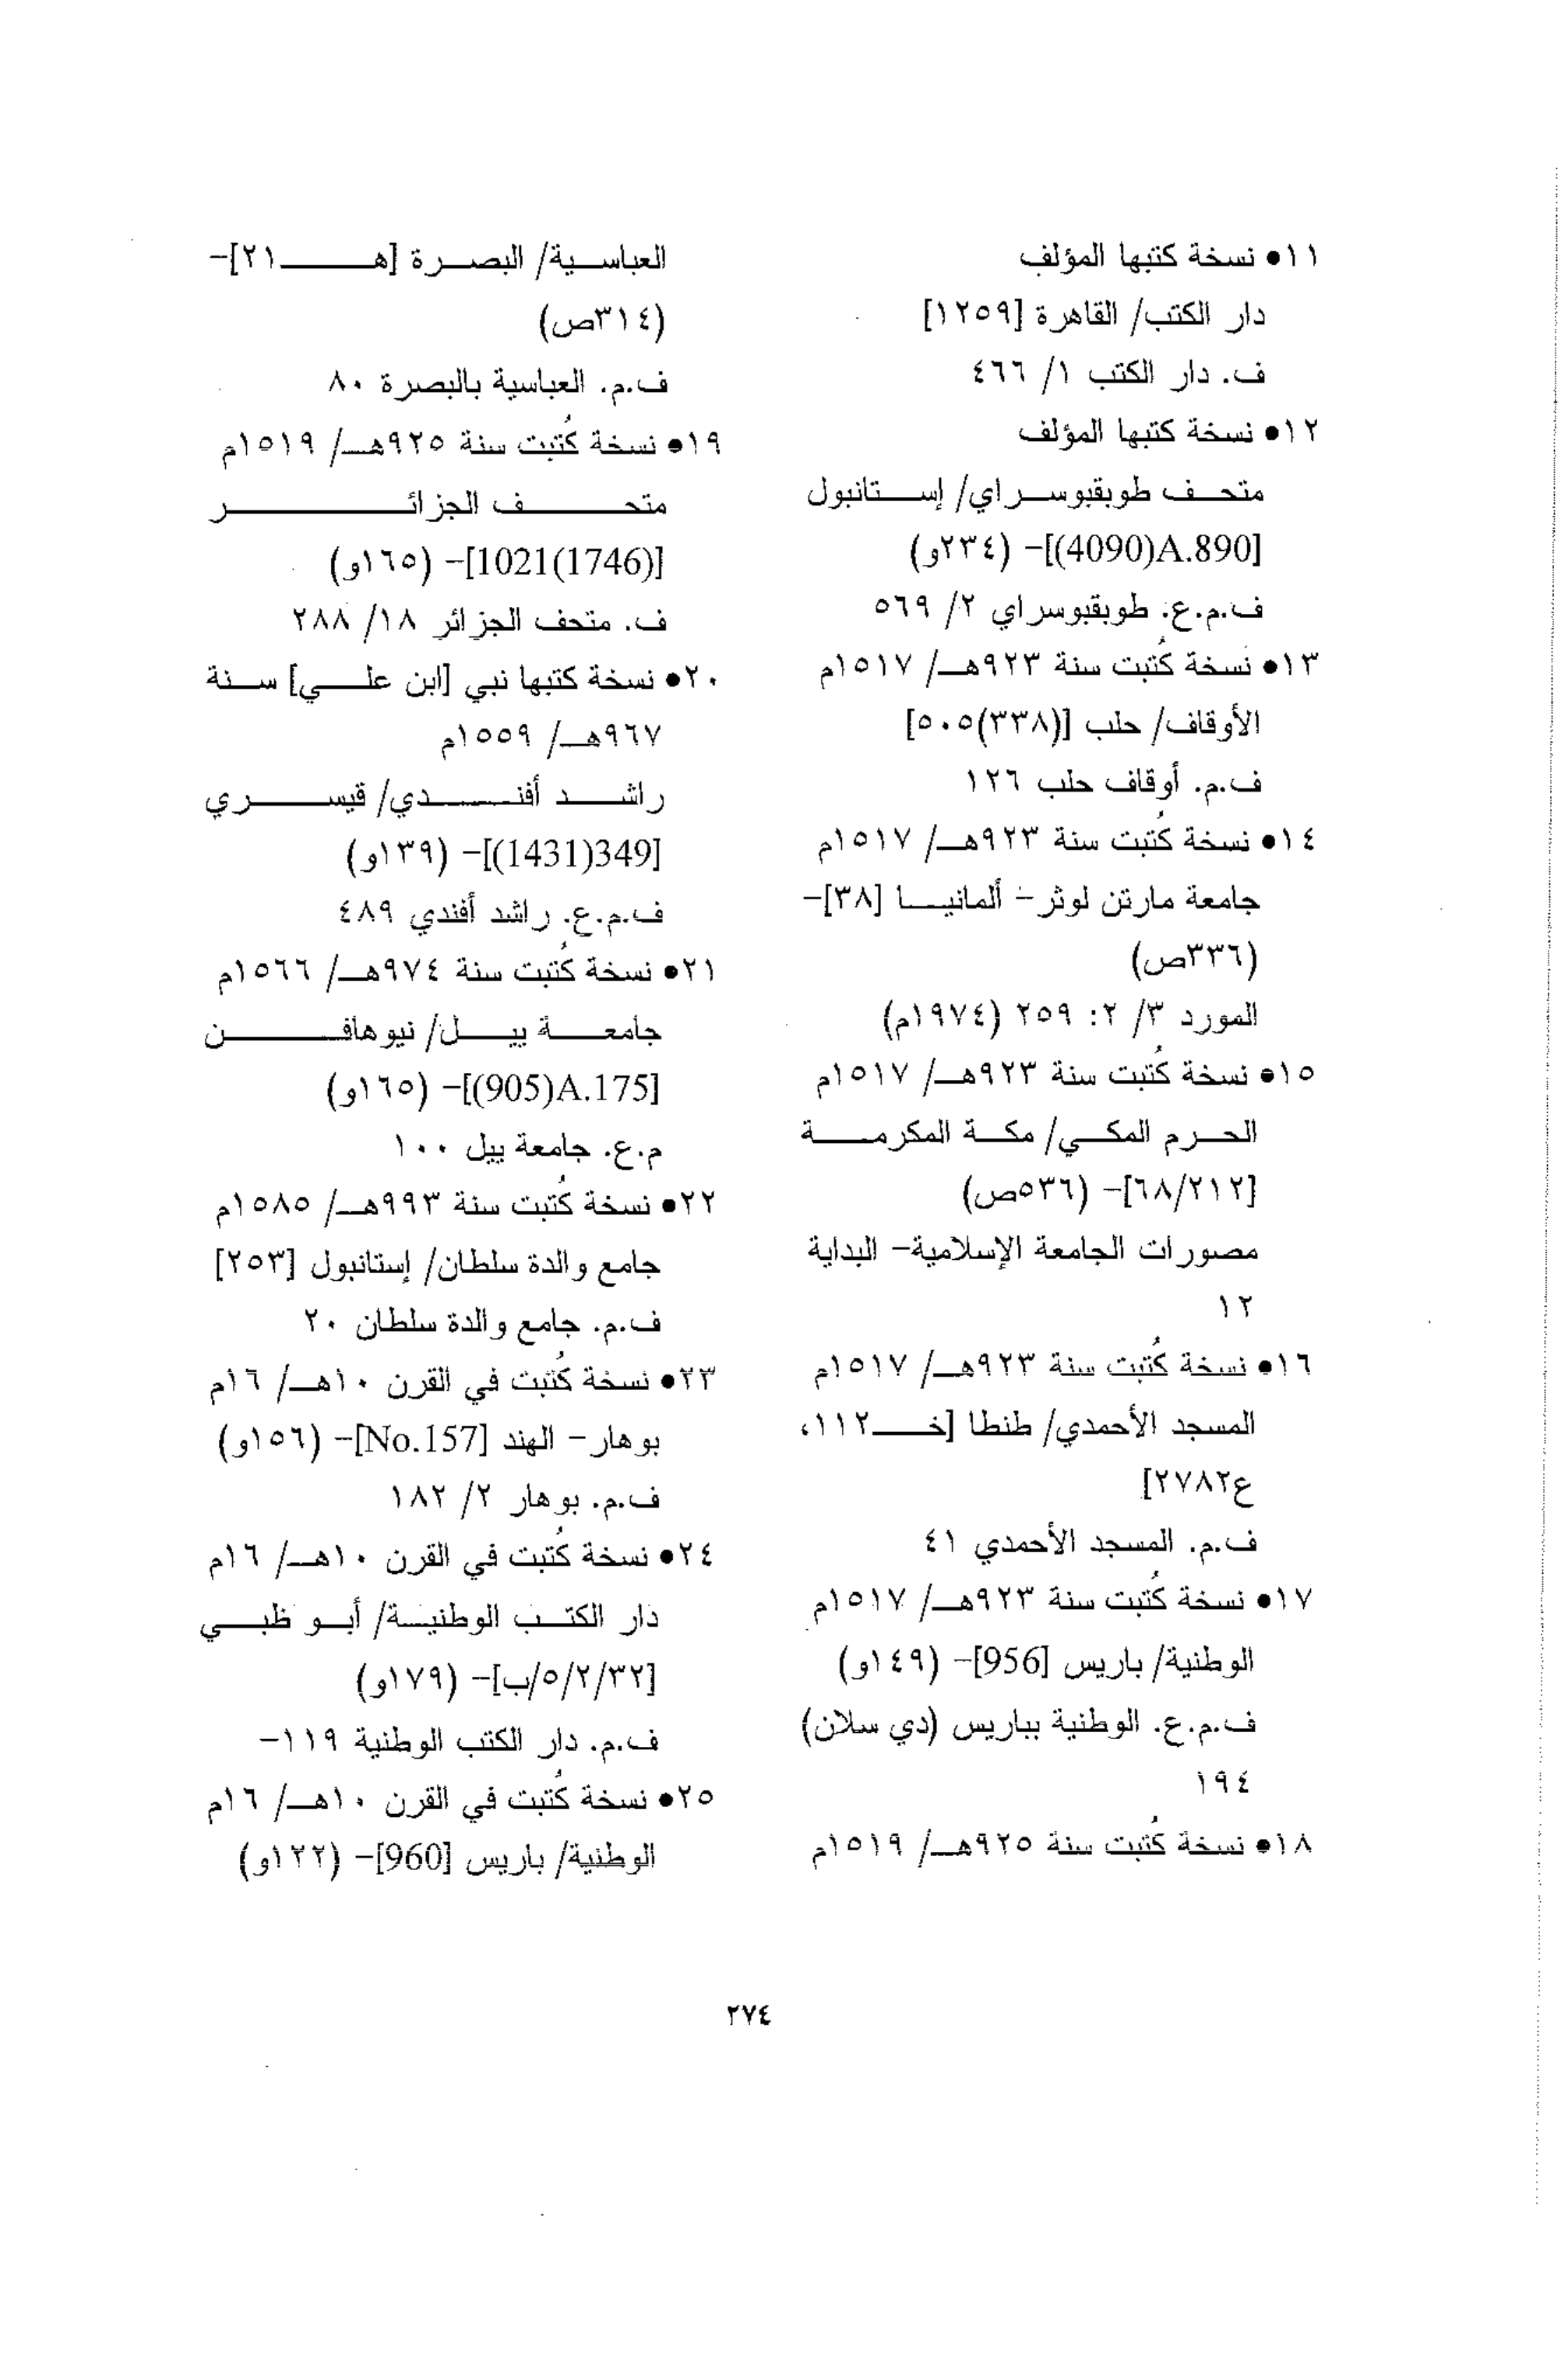 ١١● نسخة كتبها المؤلف
دار الكتب/ القاهرة [١٢٥٩]
ف. دار الكتب ١/ ٤٦٦
١٢● نسخة كتبها المؤلف
متحف طوبقبوسراي/ إستانبول
[4090)A.890)]- (٢٣٤و)
ف.م.ع. طوبقبوسراي ٢/ ٥٦٩
١٣● نسخة كُتبت سنة ٩٢٣هـ/ ١٥١٧م
الأوقاف/ حلب [(٣٣٨)٥٠٥]
ف.م. أوقاف حلب ١٢٦
١٤● نسخة كُتبت سنة ٩٢٣هـ/ ١٥١٧م
جامعة مارتن لوثر- ألمانيا [٣٨]-
(٣٣٦ص)
المورد ٣/ ٢: ٢٥٩ (١٩٧٤م)
١٥● نسخة كُتبت سنة ٩٢٣هـ/ ١٥١٧م
الحرم المكي/ مكة المكرمة
[٦٨/٢١٢]- (٥٣٦ص)
مصورات الجامعة الإسلامية- البداية
١٢
١٦● نسخة كُتبت سنة ٩٢٣هـ/ ١٥١٧م
المسجد الأحمدي/ طنطا [خـ١١٢،
ع٢٧٨٢]
ف.م. المسجد الأحمدي ٤١
١٧● نسخة كُتبت سنة ٩٢٣هـ/ ١٥١٧م
الوطنية/ باريس [956]- (١٤٩و)
ف.م.ع. الوطنية بباريس (دي سلان)
١٩٤
١٨● نسخة كُتبت سنة ٩٢٥هـ/ ١٥١٩م
العباسية/ البصرة [هـ٢١]-
(٣١٤ص)
ف.م. العباسية بالبصرة ٨٠
١٩● نسخة كُتبت سنة ٩٢٥هـ/ ١٥١٩م
متحف الجزائر
[1021(1746)]- (١٦٥و)
ف. متحف الجزائر ١٨/ ٢٨٨
٢٠● نسخة كتبها نبي [ابن علي] سنة
٩٦٧هـ/ ١٥٥٩م
راشد أفندي/ قيسري
[1431)349)]- (١٣٩و)
ف.م.ع. راشد أفندي ٤٨٩
٢١● نسخة كُتبت سنة ٩٧٤هـ/ ١٥٦٦م
جامعة ييل/ نيوهافن
[905)A.175)]- (١٦٥و)
م.ع. جامعة ييل ١٠٠
٢٢● نسخة كُتبت سنة ٩٩٣هـ/ ١٥٨٥م
جامع والدة سلطان/ إستانبول [٢٥٣]
ف.م. جامع والدة سلطان ٢٠
٢٣● نسخة كُتبت في القرن ١٠هـ/ ١٦م
بوهار- الهند [No.157]- (١٥٦و)
ف.م. بوهار ٢/ ١٨٢
٢٤● نسخة كُتبت في القرن ١٠هـ/ ١٦م
دار الكتب الوطنية/ أبو ظبي
[٣٢/٢/٥/ب]- (١٧٩و)
ف.م. دار الكتب الوطنية ١١٩-
٢٥● نسخة كُتبت في القرن ١٠هـ/ ١٦م
الوطنية/ باريس [960]- (١٢٢و)
٢٧٤